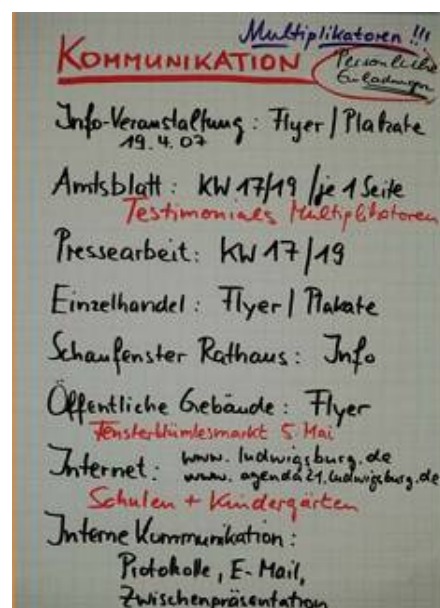 Multiplikatoren !!!
KOMMUNIKATION
Persönliche
Einladungen
Info-Veranstaltung : Flyer / Plakate
19.4.07
Amtsblatt : KW 17/19 / je 1 Seite
Testimonials Multiplikatoren
Pressearbeit : KW 17/19
Einzelhandel : Flyer / Plakate
Schaufenster Rathaus : Info
Öffentliche Gebäude : Flyer
Fensterblümlesmarkt 5. Mai
Internet : www.ludwigsburg.de
www.agenda21.ludwigsburg.de
Schulen + Kindergärten
Interne Kommunikation :
Protokolle, E-Mail,
Zwischenpräsentation